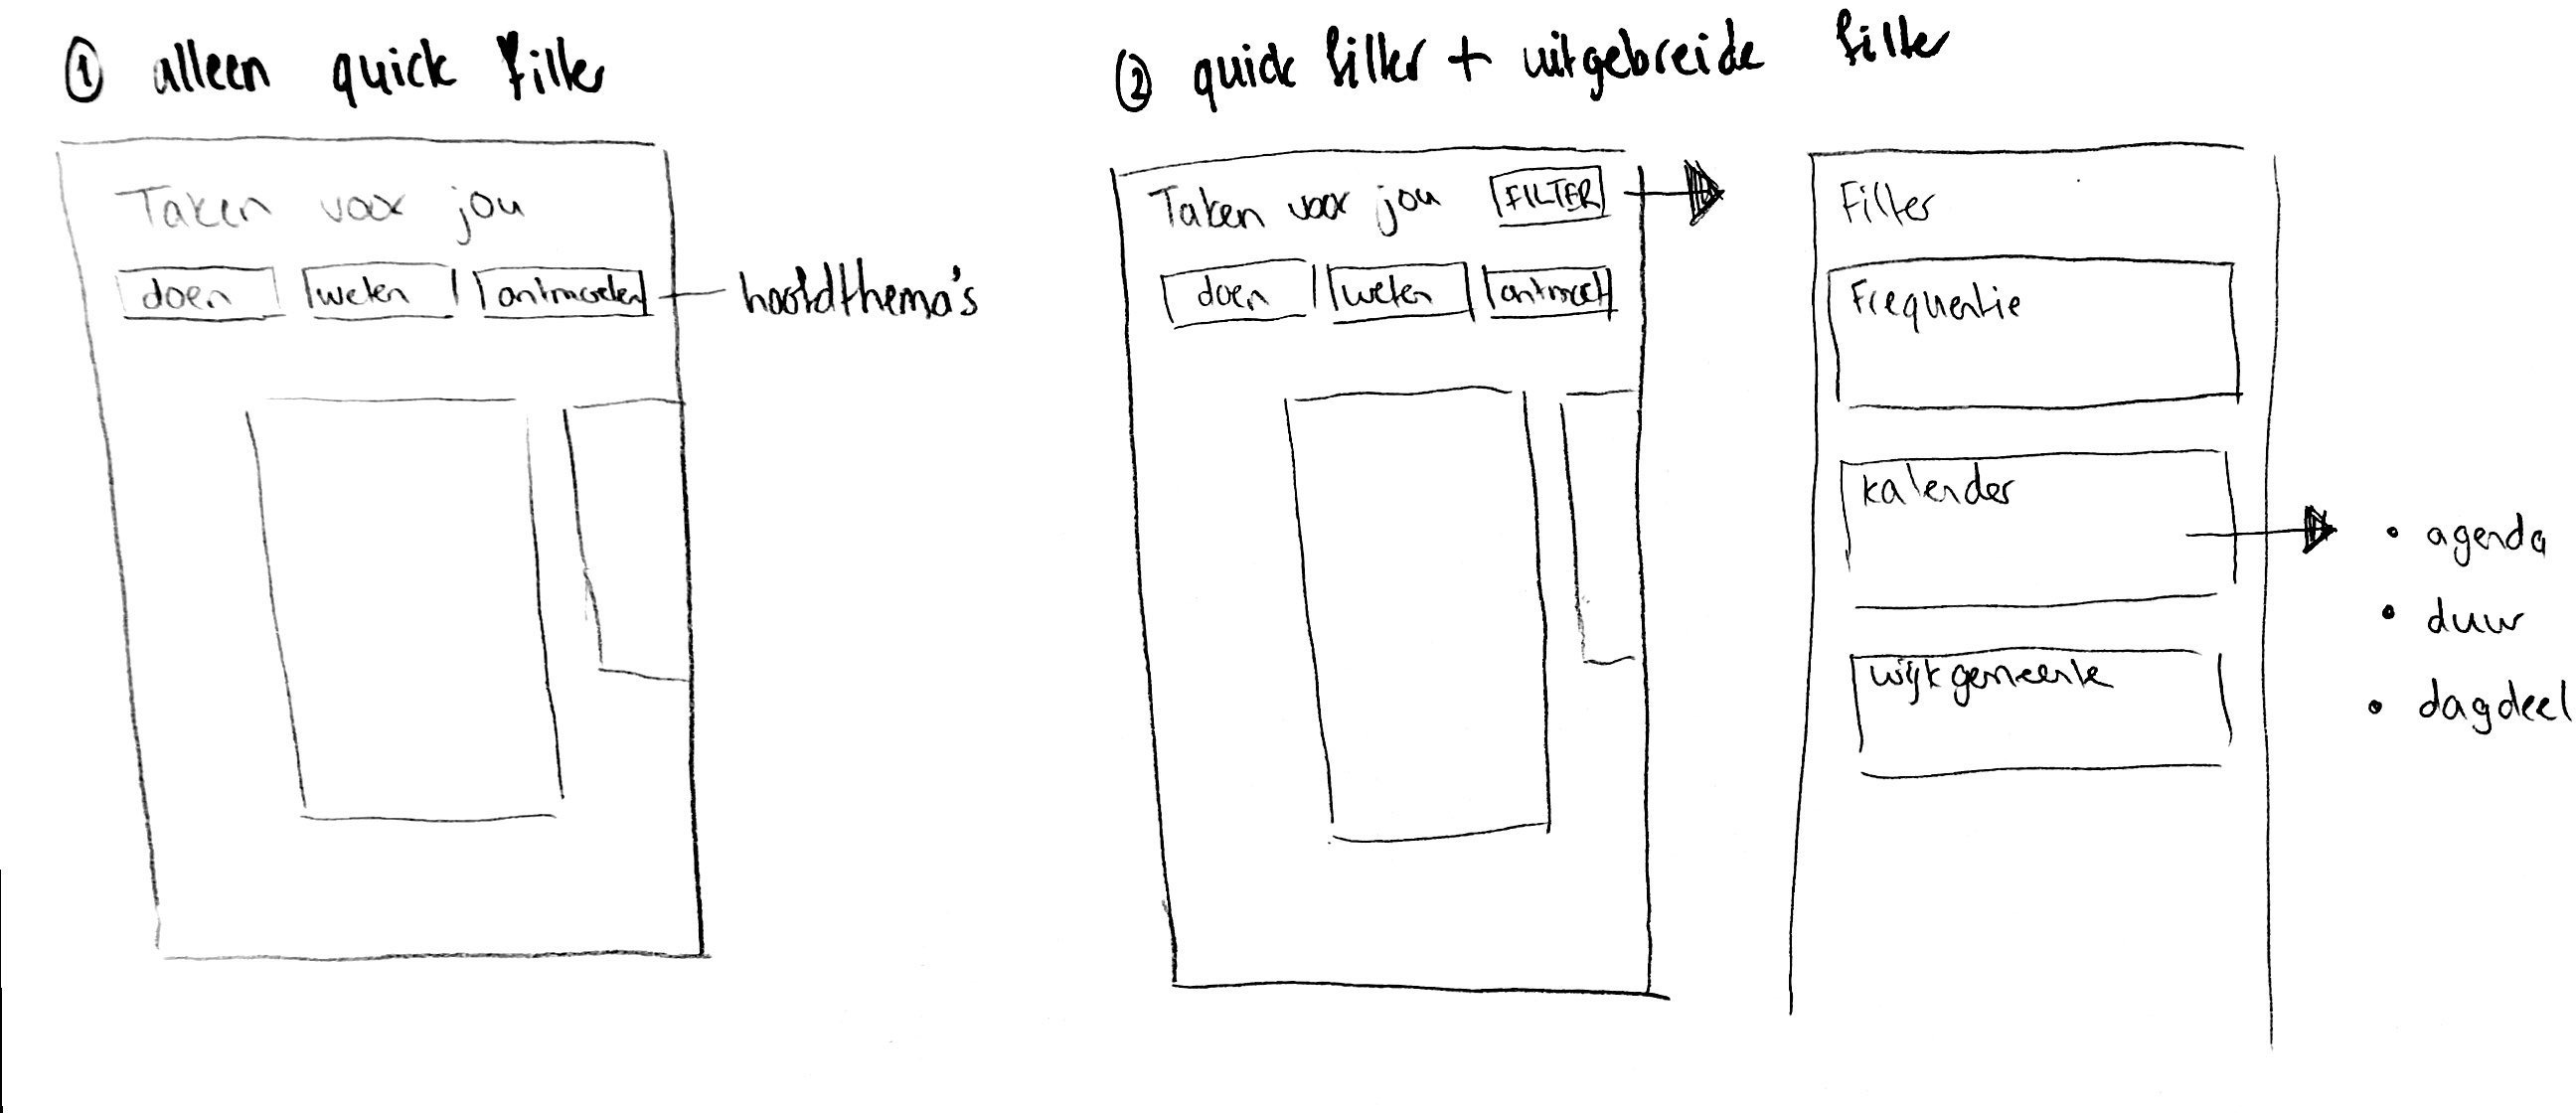 ① alleen quick filter
Taken voor jou
doen weten ontmoeten
hoofdthema's
② quick filter + uitgebreide filter
Taken voor jou FILTER
doen weten ontmoet
Filter
Frequentie
kalender
• agenda
• duur
• dagdeel
wijkgemeente